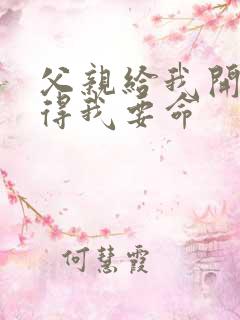 父親給我開
得我要命
何慧霞